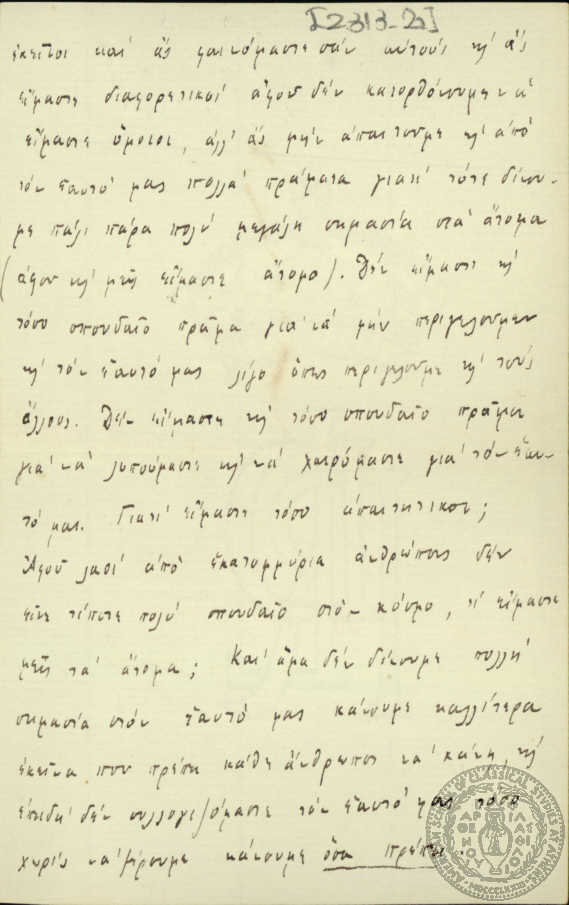 [2313-2]
ἐκεῖνοι καί ἄς φαινόμαστε σάν αὐτούς κι' ἄς
εἴμαστε διαφορετικοί ἀφοῦ δέν κατορθώνουμε νά
εἴμαστε ὅμοιοι, ἀλλ' ἄς μήν ἀπαιτοῦμε κι' ἀπό
τόν ἑαυτό μας πολλά πράματα γιατί τότε δίνου-
με πάλι πάρα πολύ μεγάλη σημασία στά ἄτομα
(ἀφοῦ κι' μεῖς εἴμαστε ἄτομο). Δέν εἴμαστε κι'
τόσο σπουδαῖο πρᾶμα γιά νά μήν περιγελοῦμεν
κι' τόν ἑαυτό μας λίγο ὅπως περιγελοῦμε κι' τούς
ἄλλους. Δέν εἴμαστε κι' τόσο σπουδαῖο πρᾶμα
γιά νά λυπούμαστε κι' νά χαιρόμαστε γιά τόν ἑαυ-
τό μας. Γιατί εἴμαστε τόσο ἀπαιτητικοί;
Ἀφοῦ λαοί ἀπό ἑκατομμύρια ἀνθρώπους δέν
εἶνε τίποτε πολύ σπουδαῖο στόν κόσμο, τί εἴμαστε
μεῖς τά ἄτομα; Καί ἅμα δέν δίνουμε πολλή
σημασία στόν ἑαυτό μας κάνουμε καλλίτερα
ἐκεῖνα που πρέπει κάθε ἄνθρωπος νά κάνῃ, κι'
ἐπειδή δέν συλλογιζόμαστε τόν ἑαυτό μας τόσο
χωρίς νά ξέρουμε κάνουμε ὅσα πρέπει.
AMERICAN SCHOOL OF CLASSICAL STUDIES AT ATHENS
MDCCCLXXXI